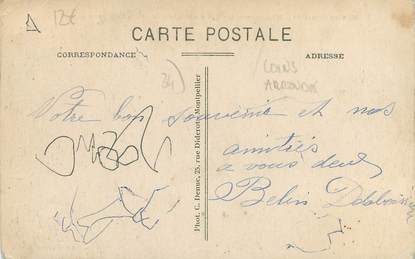 12€
CARTE POSTALE
CORRESPONDANCE
ADRESSE
34
COINS
Votre bon souvenir et nos
amitiés
a vous deux
Belin
Phot. C. Denue, 25, rue Diderot, Montpellier